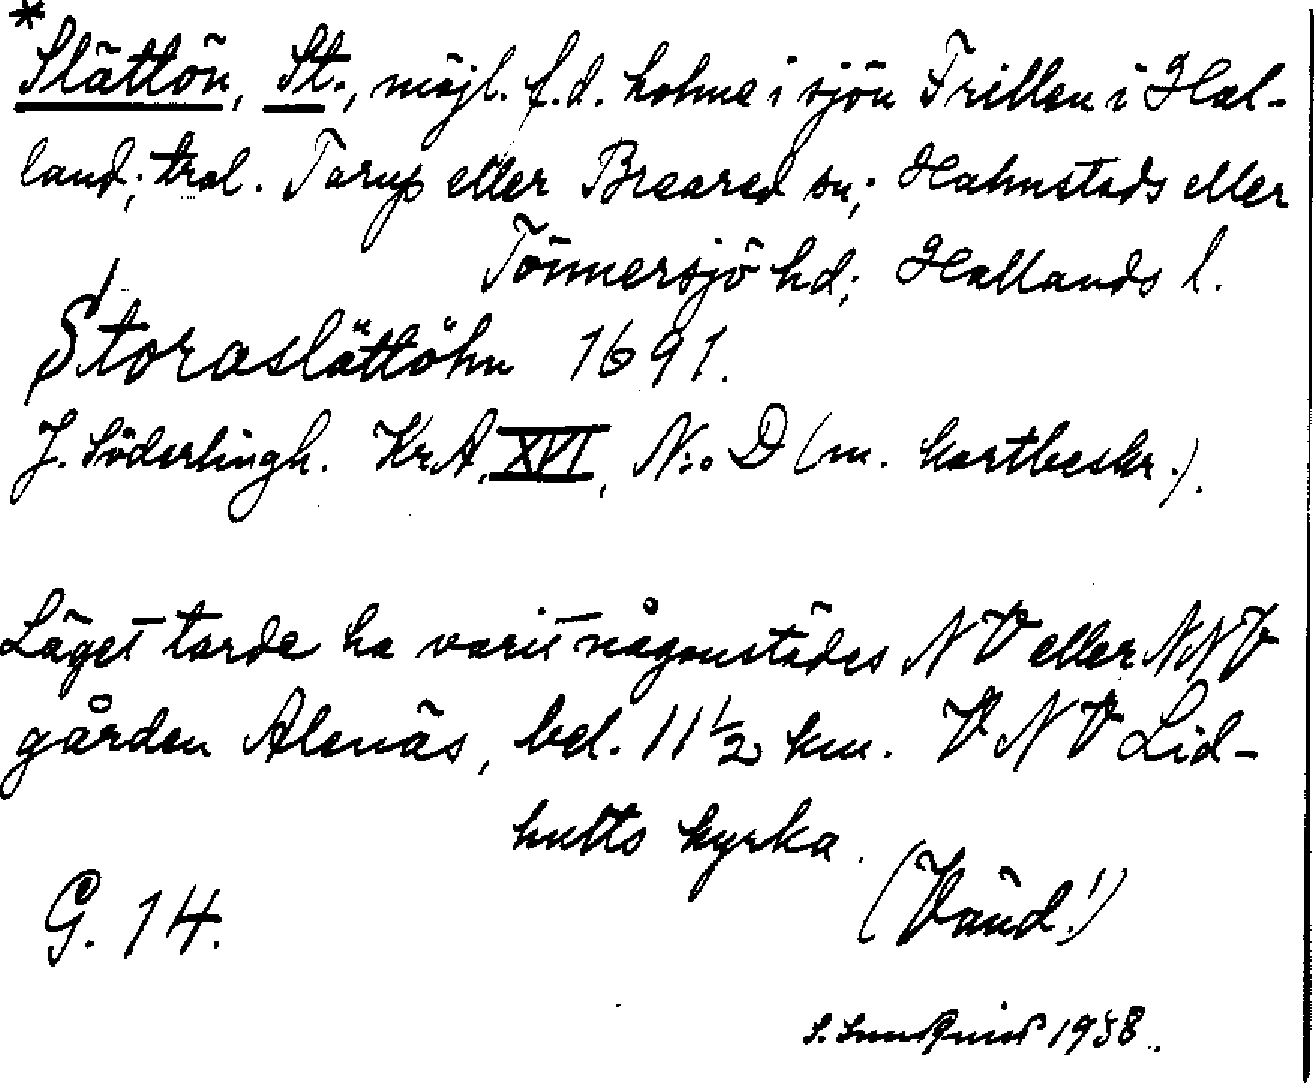 *
Slättön, St., möjl. f.d. holme i sjön Frillen i Hal-
land; trol. Torup eller Breared sn; Halmstads eller
Tönnersjö hd; Hallands l.
Storaslättöhn 1691.
J. Söderlingh. KrA, XVI, N:o D (m. kartbeskr.).
Läget torde ha varit någonstädes NV eller NNV
gården Alenäs, bel. 11½ km. VNV Lid-
hults kyrka.
(Vänd!)
G. 14.
S. 1938.